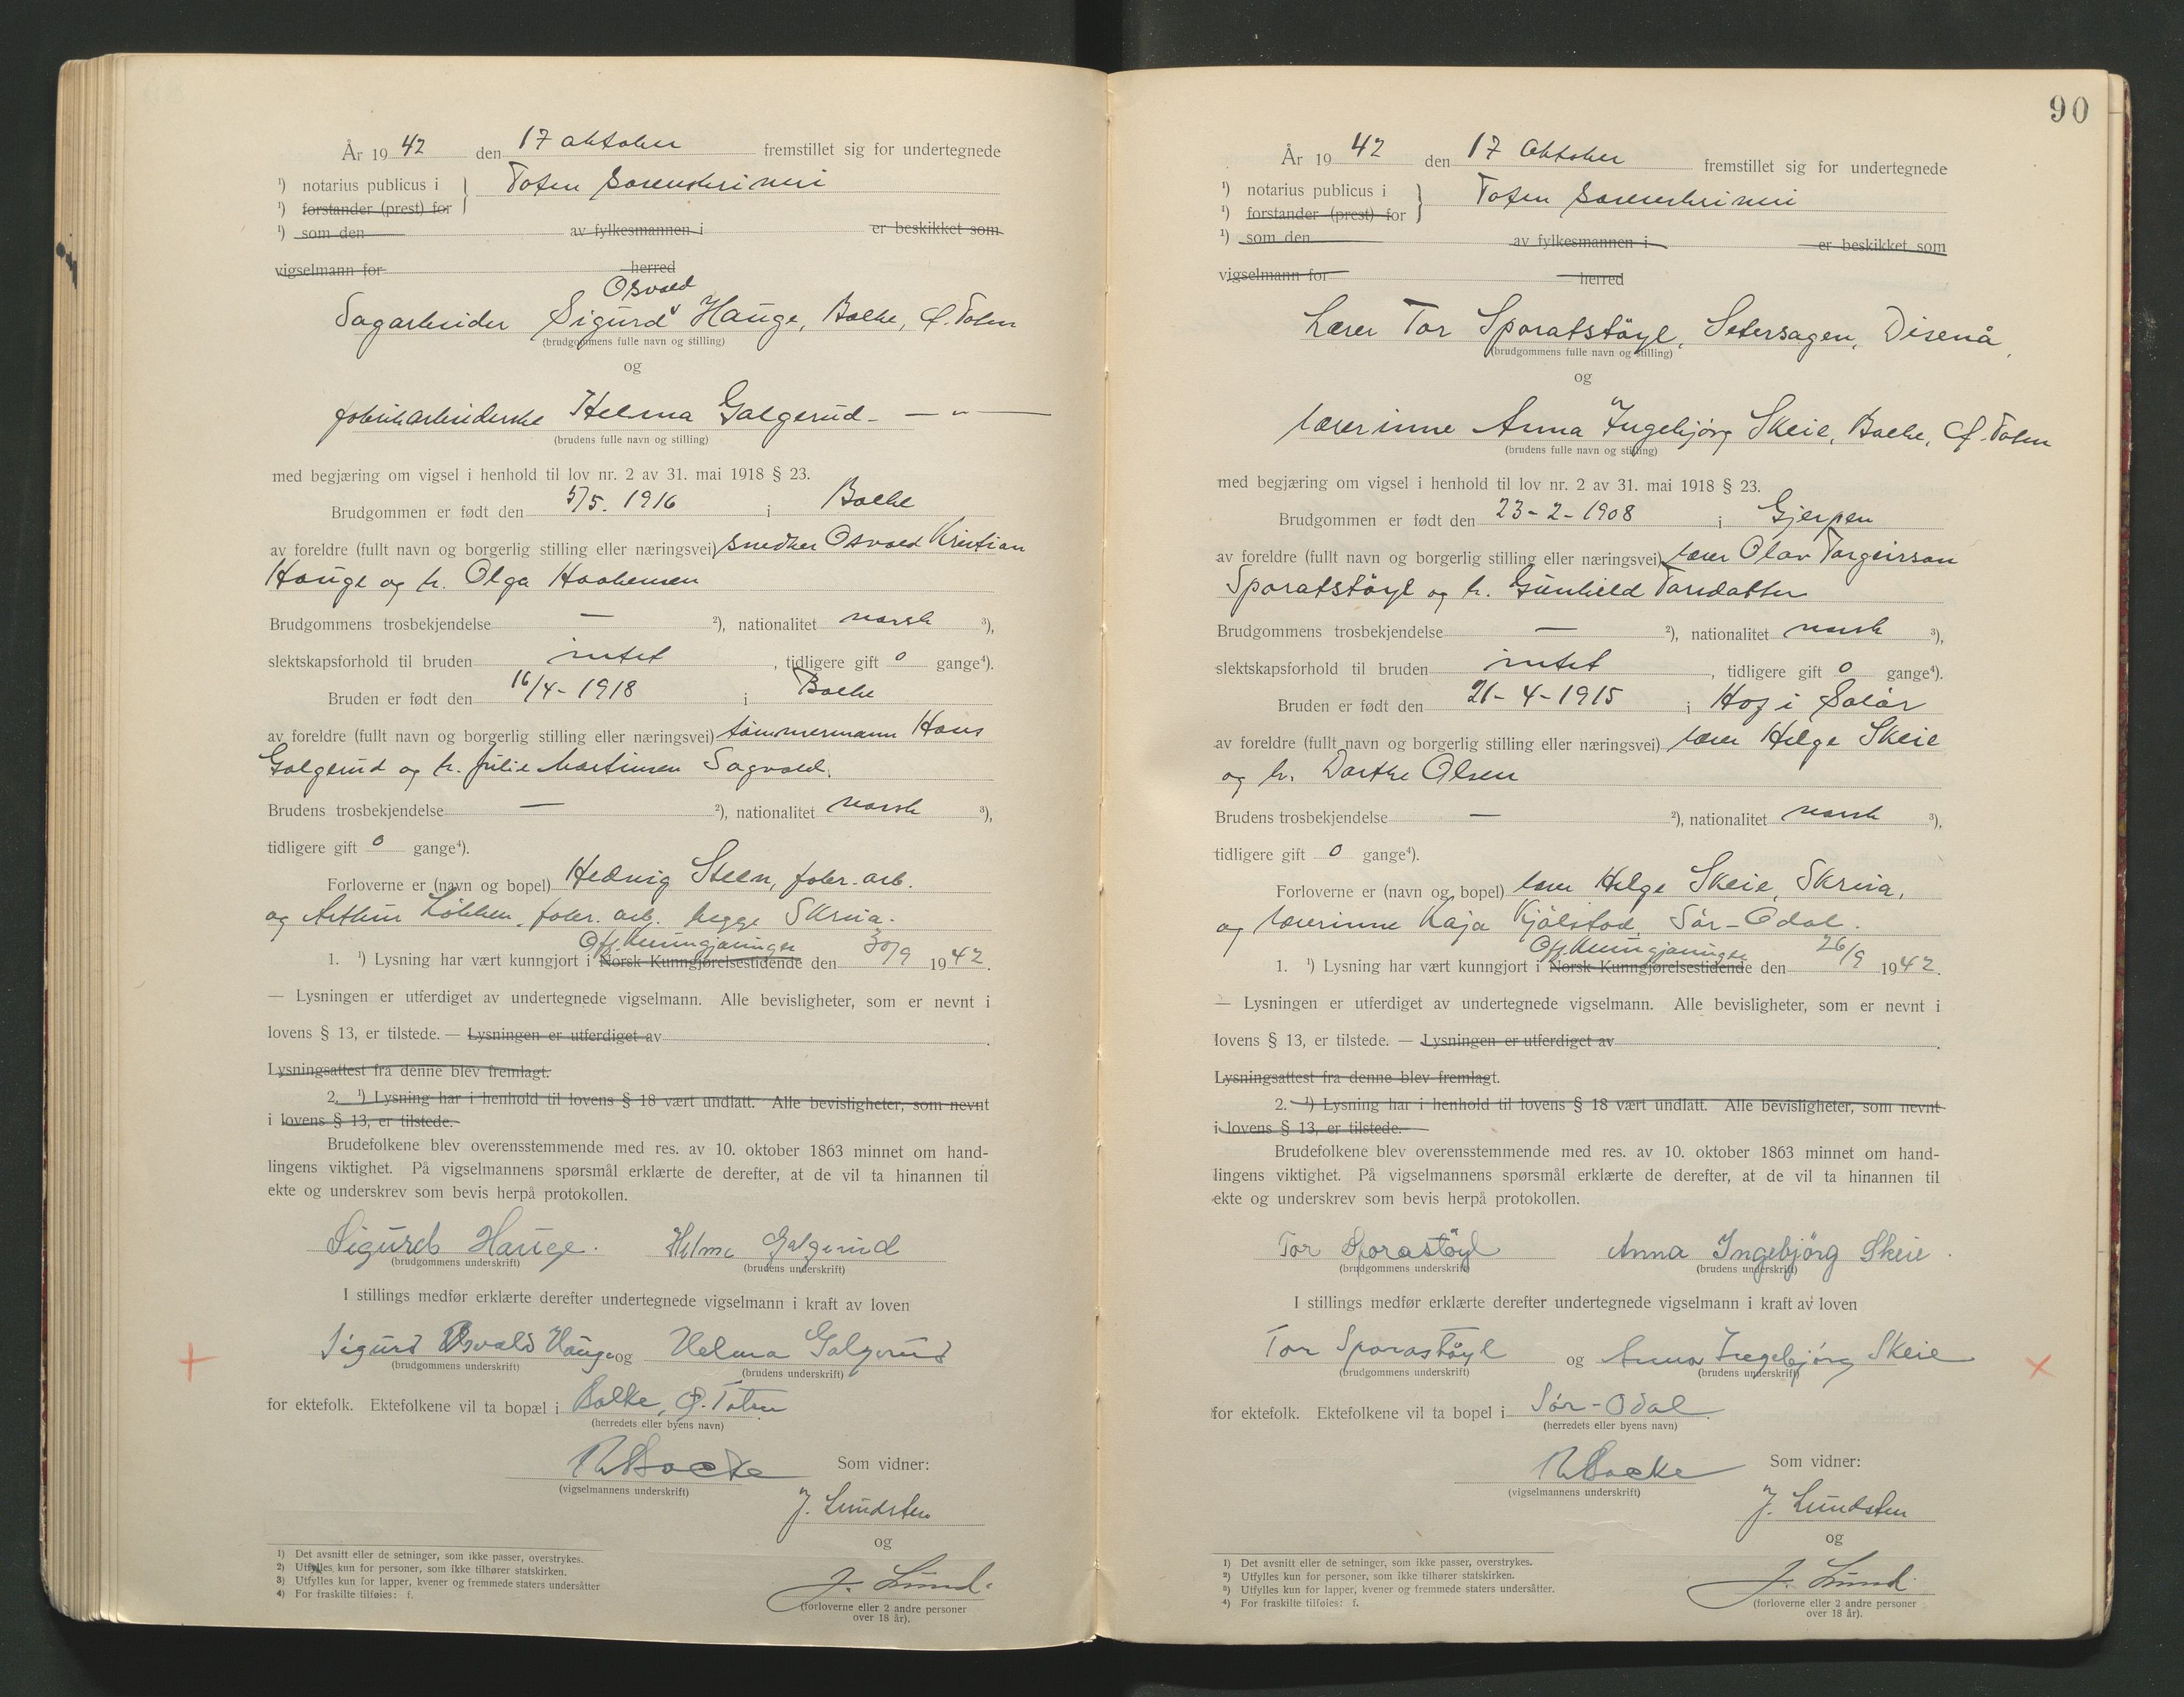 År 19 42 den 17 oktober fremstillet sig for undertegnede
¹) notarius publicus i } Toten sorenskriveri
¹) forstander (prest) for
¹) som den av fylkesmannen i er beskikket som
vigselmann for herred
Osvald
Sagarbeider Sigurd Hauge, Balke, Ø. Toten
(brudgommens fulle navn og stilling)
og
fabrikarbeiderske Helma Galgerud - — " —
(brudens fulle navn og stilling)
med begjæring om vigsel i henhold til lov nr. 2 av 31. mai 1918 § 23.
Brudgommen er født den 5/5. 1916 i Balke
av foreldre (fullt navn og borgerlig stilling eller næringsvei) snedker Osvald Kristian
Hauge og h. Olga Haakensen
Brudgommens trosbekjendelse — ²), nationalitet norsk ³),
slektskapsforhold til bruden intet, tidligere gift 0 gange⁴).
Bruden er født den 16/4 - 1918 i Balke
av foreldre (fullt navn og borgerlig stilling eller næringsvei) tømmermann Hans
Galgerud og h. Julie Martinsen Sogvold.
Brudens trosbekjendelse — ²), nationalitet norsk ³),
tidligere gift 0 gange⁴).
Forloverne er (navn og bopel) Hedvig Steen, fabr. arb.
og Arthur Løkken, fabr. arb. begge Skreia.
Off. Kunngjøringer
1. ¹) Lysning har vært kunngjort i Norsk Kunngjørelsestidende den 30/9 1942.
— Lysningen er utferdiget av undertegnede vigselmann. Alle bevisligheter, som er nevnt i
lovens § 13, er tilstede. — Lysningen er utferdiget av
Lysningsattest fra denne blev fremlagt.
2. ¹) Lysning har i henhold til lovens § 18 vært undlatt. Alle bevisligheter, som nevnt
i lovens § 13, er tilstede.
Brudefolkene blev overensstemmende med res. av 10. oktober 1863 minnet om hand-
lingens viktighet. På vigselmannens spørsmål erklærte de derefter, at de vil ta hinannen til
ekte og underskrev som bevis herpå protokollen.
Sigurd Hauge. Helma Galgerud
(brudgommens underskrift) (brudens underskrift)
I stillings medfør erklærte derefter undertegnede vigselmann i kraft av loven
Sigurd Osvald Hauge og Helma Galgerud
(brudgommens underskrift) (brudens underskrift)
for ektefolk. Ektefolkene vil ta bopæl i Balke, Ø. Toten
(herredets eller byens navn)
Som vidner:
(vigselmannens underskrift)
J. Lundsten
og
J. Lund.
(forloverne eller 2 andre personer
over 18 år).
1) Det avsnitt eller de setninger, som ikke passer, overstrykes.
2) Utfylles kun for personer, som ikke tilhører statskirken.
3) Utfylles kun for lapper, kvener og fremmede staters undersåtter
4) For fraskilte tilføies: f.
90
År 19 42 den 17 oktober fremstillet sig for undertegnede
¹) notarius publicus i } Toten sorenskriveri
¹) forstander (prest) for
¹) som den av fylkesmannen i er beskikket som
vigselmann for herred
Lærer Tor Sporatstöyl, Setersagen, Disenå,
(brudgommens fulle navn og stilling)
og
lærerinne Anna Ingebjörg Skeie, Balke, Ø. Toten
(brudens fulle navn og stilling)
med begjæring om vigsel i henhold til lov nr. 2 av 31. mai 1918 § 23.
Brudgommen er født den 23-2-1908 i Gjerpen
av foreldre (fullt navn og borgerlig stilling eller næringsvei) lærer Olav Torgeirson
Sporatstöyl og h. Gunhild Torsdatter
Brudgommens trosbekjendelse — ²), nationalitet norsk ³),
slektskapsforhold til bruden intet, tidligere gift 0 gange⁴).
Bruden er født den 21-4-1915 i Hof i Solør
av foreldre (fullt navn og borgerlig stilling eller næringsvei) lærer Helge Skeie
og h. Dorthe Olsen
Brudens trosbekjendelse — ²), nationalitet norsk ³),
tidligere gift 0 gange⁴).
Forloverne er (navn og bopel) lærer Helge Skeie, Skreia,
og lærerinne Kaja Kjölstad, Sör-Odal.
Off. Kunngjøringer
1. ¹) Lysning har vært kunngjort i Norsk Kunngjørelsestidende den 26/9 1942.
— Lysningen er utferdiget av undertegnede vigselmann. Alle bevisligheter, som er nevnt i
lovens § 13, er tilstede. — Lysningen er utferdiget av
Lysningsattest fra denne blev fremlagt.
2. ¹) Lysning har i henhold til lovens § 18 vært undlatt. Alle bevisligheter, som nevnt
i lovens § 13, er tilstede.
Brudefolkene blev overensstemmende med res. av 10. oktober 1863 minnet om hand-
lingens viktighet. På vigselmannens spørsmål erklærte de derefter, at de vil ta hinannen til
ekte og underskrev som bevis herpå protokollen.
Tor Sporastöyl Anna Ingebjörg Skeie.
(brudgommens underskrift) (brudens underskrift)
I stillings medfør erklærte derefter undertegnede vigselmann i kraft av loven
Tor Sporastöyl og Anna Ingebjörg Skeie
(brudgommens underskrift) (brudens underskrift)
for ektefolk. Ektefolkene vil ta bopel i Sör-Odal.
(herredets eller byens navn)
Som vidner:
(vigselmannens underskrift)
J. Lundsten
og
J. Lund.
(forloverne eller 2 andre personer
over 18 år).
1) Det avsnitt eller de setninger, som ikke passer, overstrykes.
2) Utfylles kun for personer, som ikke tilhører statskirken.
3) Utfylles kun for lapper, kvener og fremmede staters undersåtter.
4) For fraskilte tilføies: f.